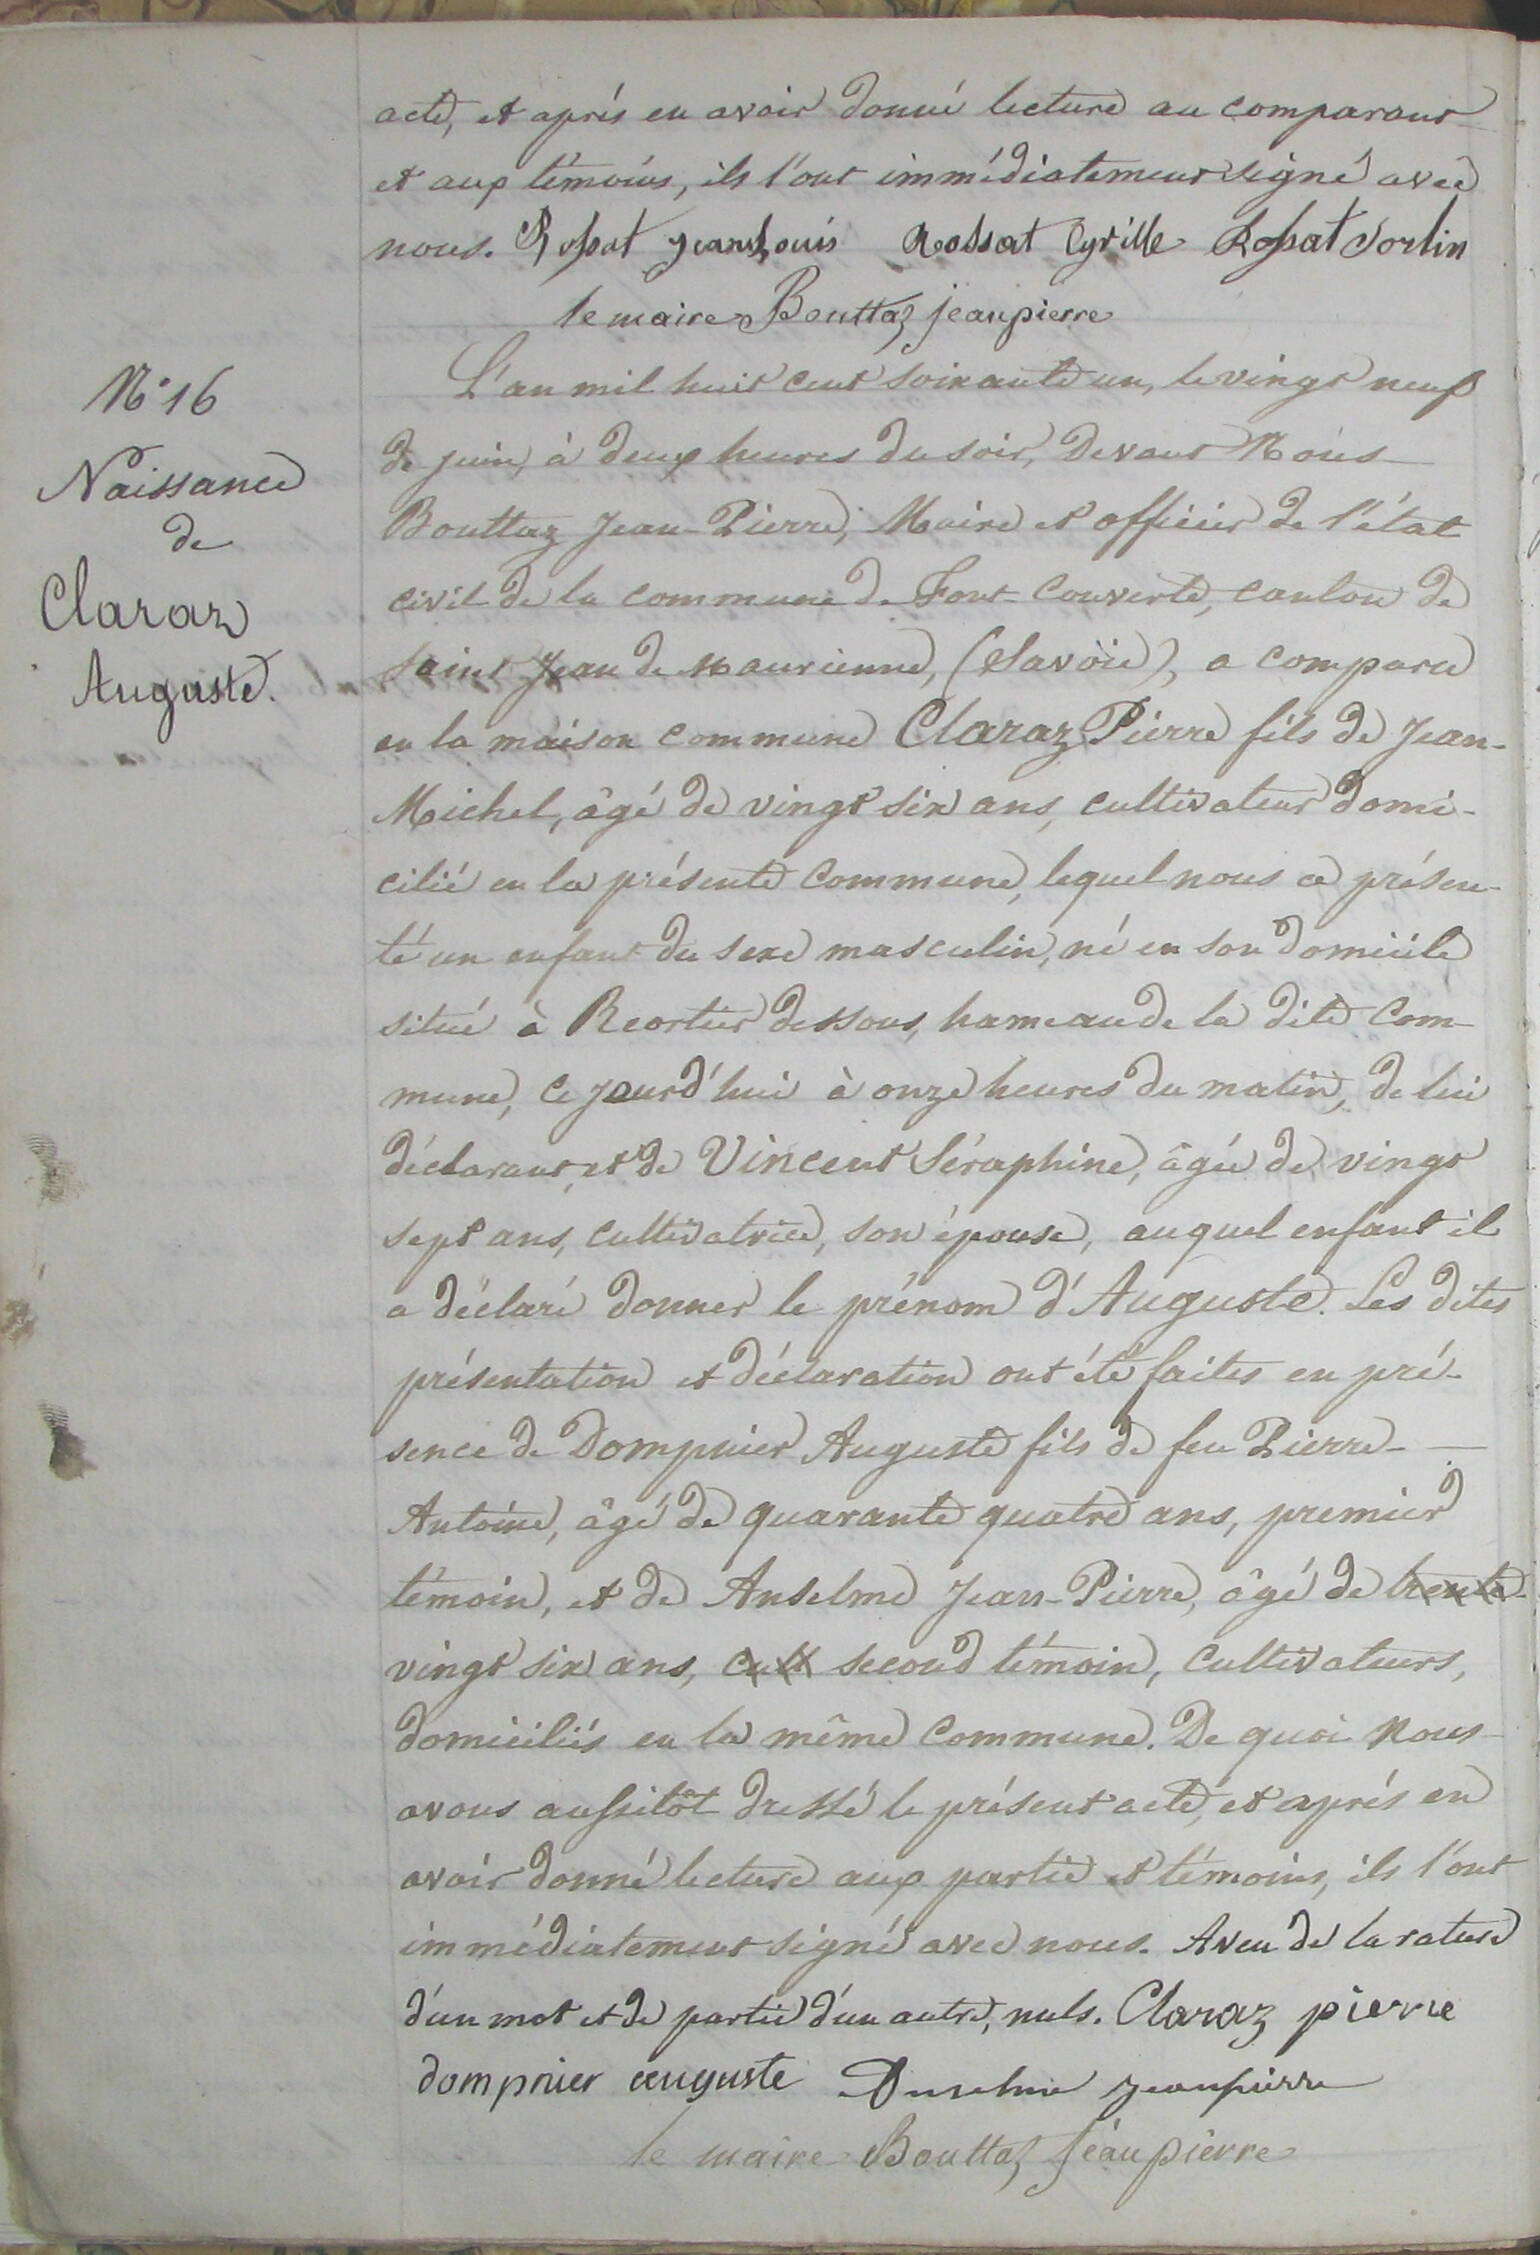 acte, et après en avoir donné lecture au comparant
et aux témoins, ils l'ont immédiatement signé avec
nous. Rossat Jean Louis Rossat Cyrille Rossat Sorlin
le maire Bouttaz jeanpierre
N° 16
Naissance
de
Claraz
Auguste.
L'an mil huit cent soixante un, le vingt neuf
de juin, à deux heures du soir, Devant Nous
Bouttaz Jean-Pierre, Maire et officier de l'état
civil de la commune de Font-Couverte, canton de
Saint Jean de Maurienne, (Savoie), a comparu
en la maison commune Claraz Pierre fils de Jean-
Michel, âgé de vingt six ans, cultivateur domi-
cilié en la présente commune, lequel nous a présen-
té un enfant du sexe masculin, né en son domicile
situé à Reortier dessous, hameau de la dite Com-
mune, ce jourd'hui à onze heures du matin, de lui
déclarant, et de Vincent Séraphine, âgée de vingt
sept ans, cultivatrice, son épouse, auquel enfant il
a déclaré donner le prénom d'Auguste. Les dites
présentation et déclaration ont été faites en pré-
sence de Dompnier Auguste fils de feu Pierre-
Antoine, âgé de quarante quatre ans, premier
témoin, et de Anselme Jean-Pierre, âgé de trente
vingt six ans, cult second témoin, cultivateurs,
domiciliés en la même commune. De quoi Nous
avons aussitôt dressé le présent acte, et après en
avoir donné lecture aux partie et témoins, ils l'ont
immédiatement signé avec nous. Aveu de la rature
d'un mot et de partie d'un autre, nuls. Claraz pierre
dompnier auguste Anselme jeanpierre
le maire Bouttaz jeanpierre